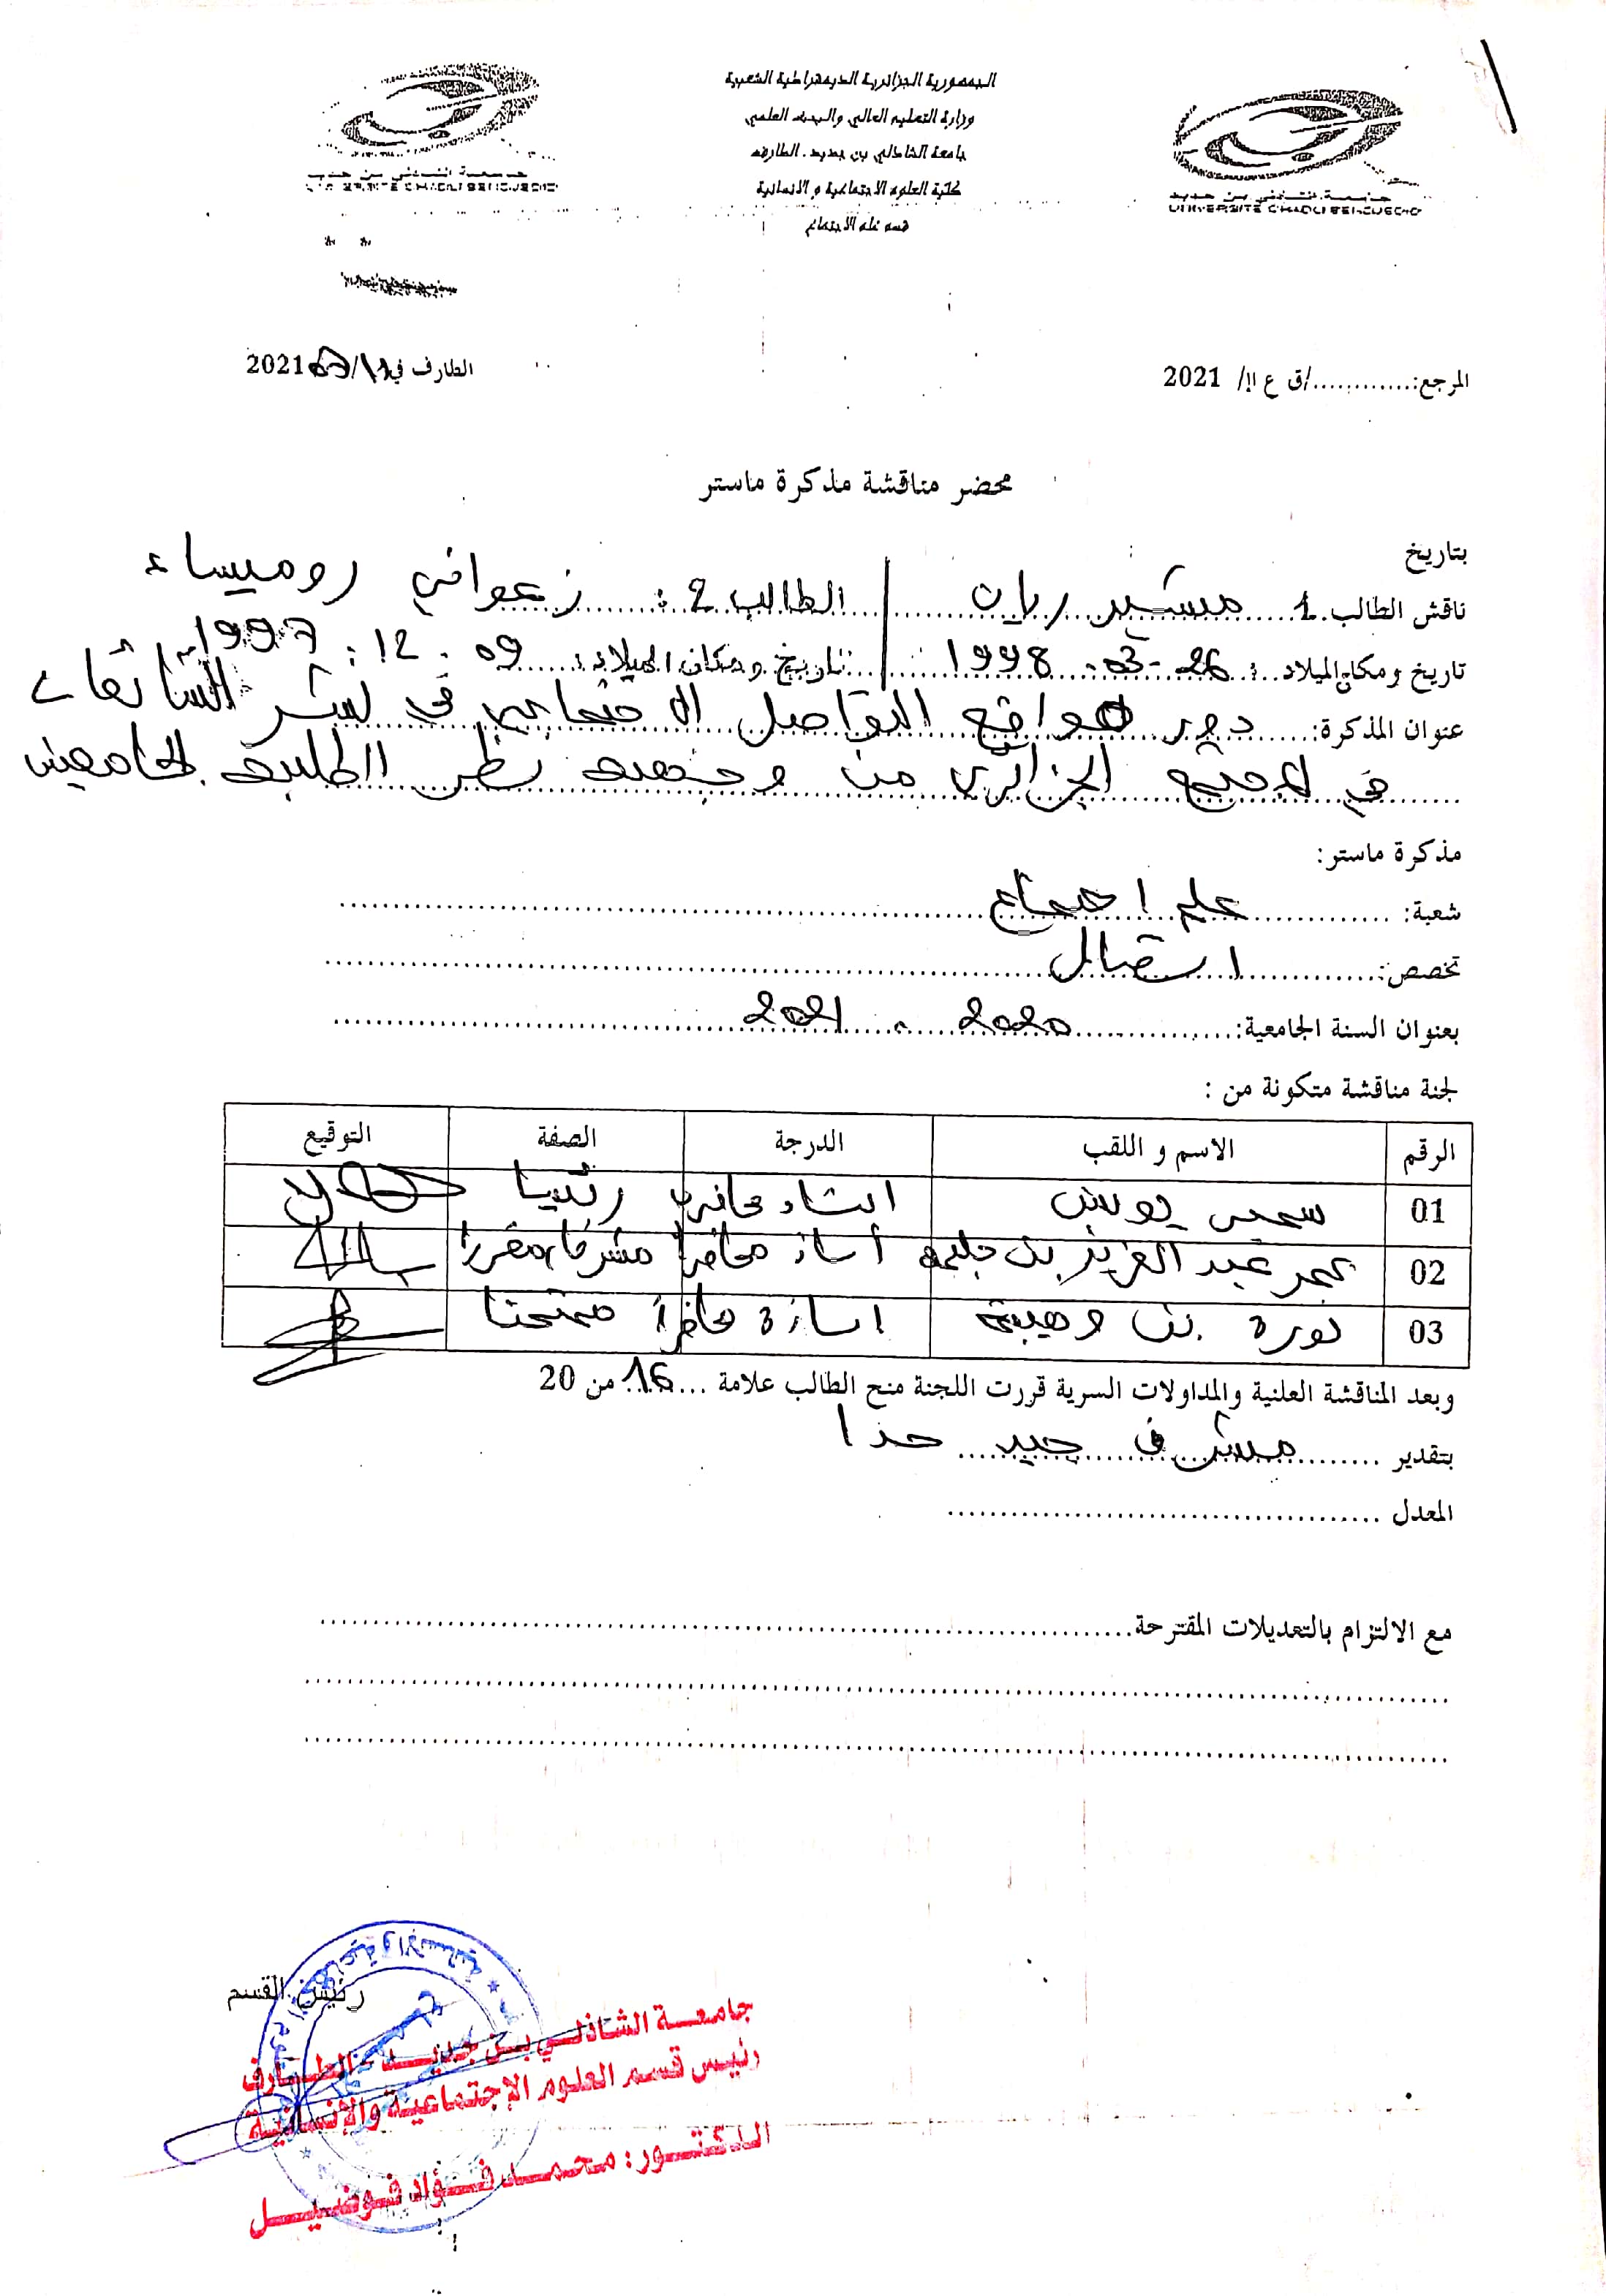 الجمهورية الجزائرية الديمقراطية الشعبية
وزارة التعليم العالي والبحث العلمي
جامعة الشاذلي بن جديد. الطارف
كلية العلوم الاجتماعية و الانسانية
قسم علم الاجتماع
جامعة الشاذلي بن جديد
UNIVERSITE CHADLI BENDJEDID
جامعة الشاذلي بن جديد
UNIVERSITE CHADLI BENDJEDID
المرجع:............/ق ع إ/ 2021
الطارف في 2021
محضر مناقشة مذكرة ماستر
بتاريخ
ناقش الطالب 1 ريان / الطالب 2: روميساء
تاريخ ومكان الميلاد: 26-03-1998 / تاريخ ومكان الميلاد: 09.12.1997
عنوان المذكرة: دور مواقع التواصل الاجتماعي في نشر الشائعات
في المجتمع الجزائري من وجهة نظر الطلبة الجامعيين
مذكرة ماستر:
شعبة: علم اجتماع
تخصص: اتصال
بعنوان السنة الجامعية: 2020 . 2021
لجنة مناقشة متكونة من :
الرقم الاسم و اللقب الدرجة الصفة التوقيع
01 أستاذ محاضر رئيسا
02 عبد العزيز بن أستاذ محاضر مشرفا ومقررا
03 نورة بن وهيبة استاذة محاضرة ممتحنا
وبعد المناقشة العلنية والمداولات السرية قررت اللجنة منح الطالب علامة ...16... من 20
بتقدير جيد جدا
المعدل
مع الالتزام بالتعديلات المقترحة
رئيس القسم
جامعة الشاذلي بن جديد - الطارف
رئيس قسم العلوم الإجتماعية والإنسانية
الدكتور: محمد فؤاد فوضيل